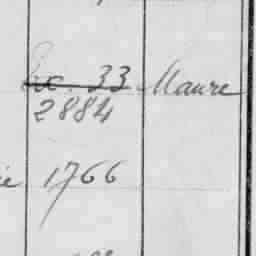 Exc. 33 Maure
2884
1766